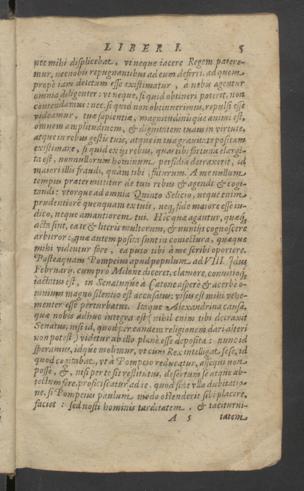 LIBER I. 5
nte mihi displicebat, vt neque iacere Regem patere-
mur, nec nobis repugnantibus ad eum deferri, ad quem
prope iam delatum esse existimatur, a nobis agetur
omnia diligenter: vt neque, si quid obtineri poterit, non
contendamus: nec si quid non obtinuerimus, repulsi esse
videamur, tuæ sapientiæ, magnitudinisque animi est,
omnem amplitudinem, & dignitatem tuam in virtute,
atque in rebus gestis tuis, atque in tua grauitate positam
existimare, si quid ex ijs rebus, quas tibi fortuna largi-
ta est, nonnullorum hominum perfidia detraxerit, id
maiori illis fraudi, quam tibi, futurum. A me nullum
tempus prætermittitur de tuis rebus & agendi & cogi-
tandi: vtorque ad omnia Quinto Selicio, neque enim
prudentiorē quenquam ex tuis, neq; fide maiore esse iu-
dico, neque amantiorem tui. Hic quæ agantur, quæq;
acta sint, ea te & literis multorum, & nuntijs cognoscere
arbitror: quæ autem posita sunt in coniectura, quæque
mihi videntur fore, ea puto tibi à me scribi oportere.
Posteaquam Pompeius apud populum ad VIII. Idus
Februarij, cum pro Milone diceret, clamore, conuitioq;
iactatus est, in Senatuque à Catone aspere & acerbe o-
mnium magno silentio est accusatus: visus est mihi vehe-
menter esse perturbatus. Itaque Alexandrina causa,
quæ nobis adhuc integra est (nihil enim tibi detraxit
Senatus, nisi id, quod per eandem religionem dari alteri
non potest) videtur ab illo plane esse deposita: nunc id
speramus, idque molimur, vt cum Rex intelligat sese, id
quod cogitabat, vt à Pompeio reducatur, assequi non
posse, &, nisi per te sit restitutus, desertum se atque ab-
iectum fore, proficiscatur ad te. quod sine vlla dubitatio-
ne, si Pompeius paulum modo ostenderit sibi placere,
faciet: sed nosti hominis tarditatem, & taciturni-
A 5 tatem